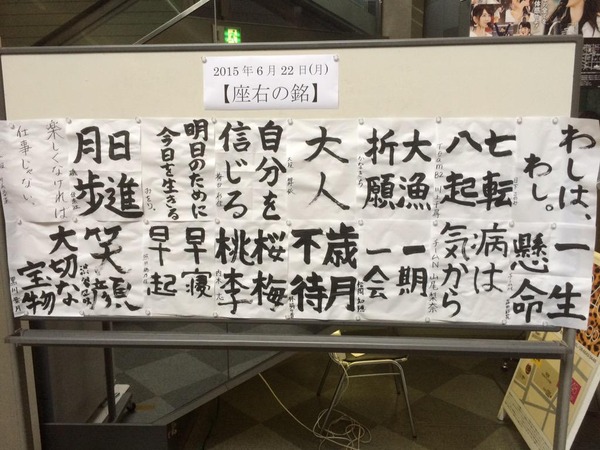 2015年6月22日(月)
【座右の銘】
わしは、
わし。
七転
八起
大漁
祈願
大人
自分を
信じる
明日のために
今日を生きる
日進
月歩
楽しくなければ
仕事じゃない。
一生
懸命
病は
気から
山尾梨奈
一期
一会
歳月
不待
桜梅
桃李
早寝
早起
笑顔
渋谷凪咲
大切な
宝物